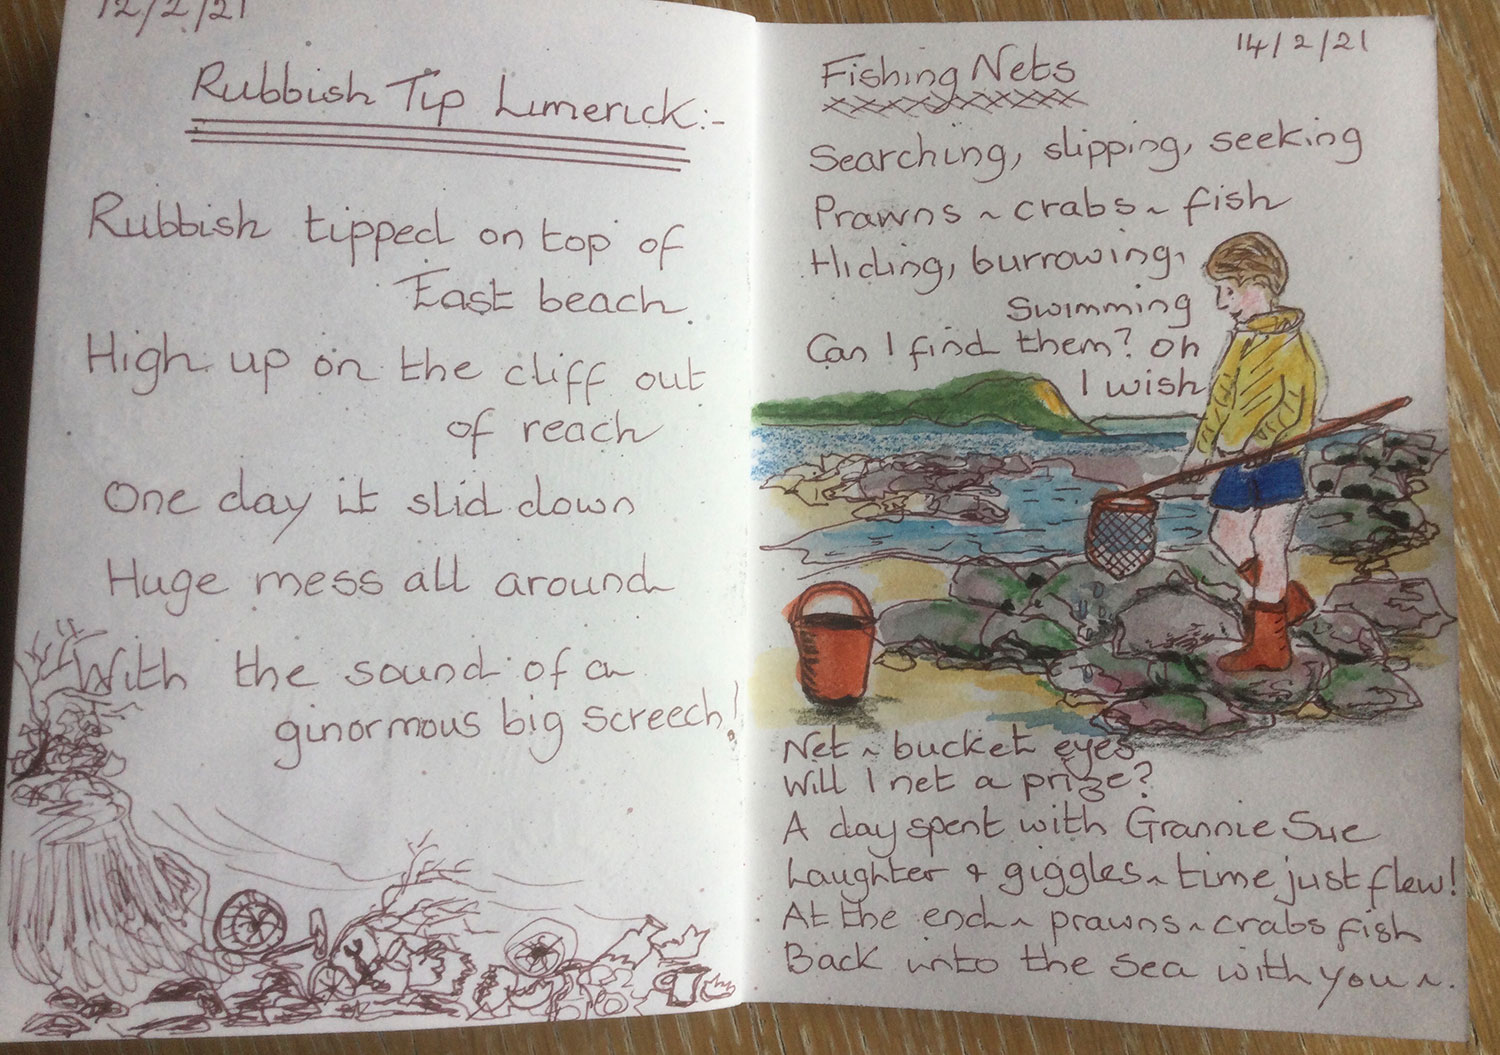 12/2/21
Rubbish Tip Limerick:-
Rubbish tipped on top of
East beach
High up on the cliff out
of reach
One day it slid down
Huge mess all around
With the sound of a
ginormous big screech!
14/2/21
Fishing Nets
Searching, slipping, seeking
Prawns ~ crabs ~ fish
Hiding, burrowing,
Swimming
Can I find them? Oh
I wish
Net ~ bucket eyes
Will I net a prize?
A day spent with Grannie Sue
Laughter & giggles ~ time just flew!
At the end ~ prawns ~ crabs fish
Back into the sea with you ~.